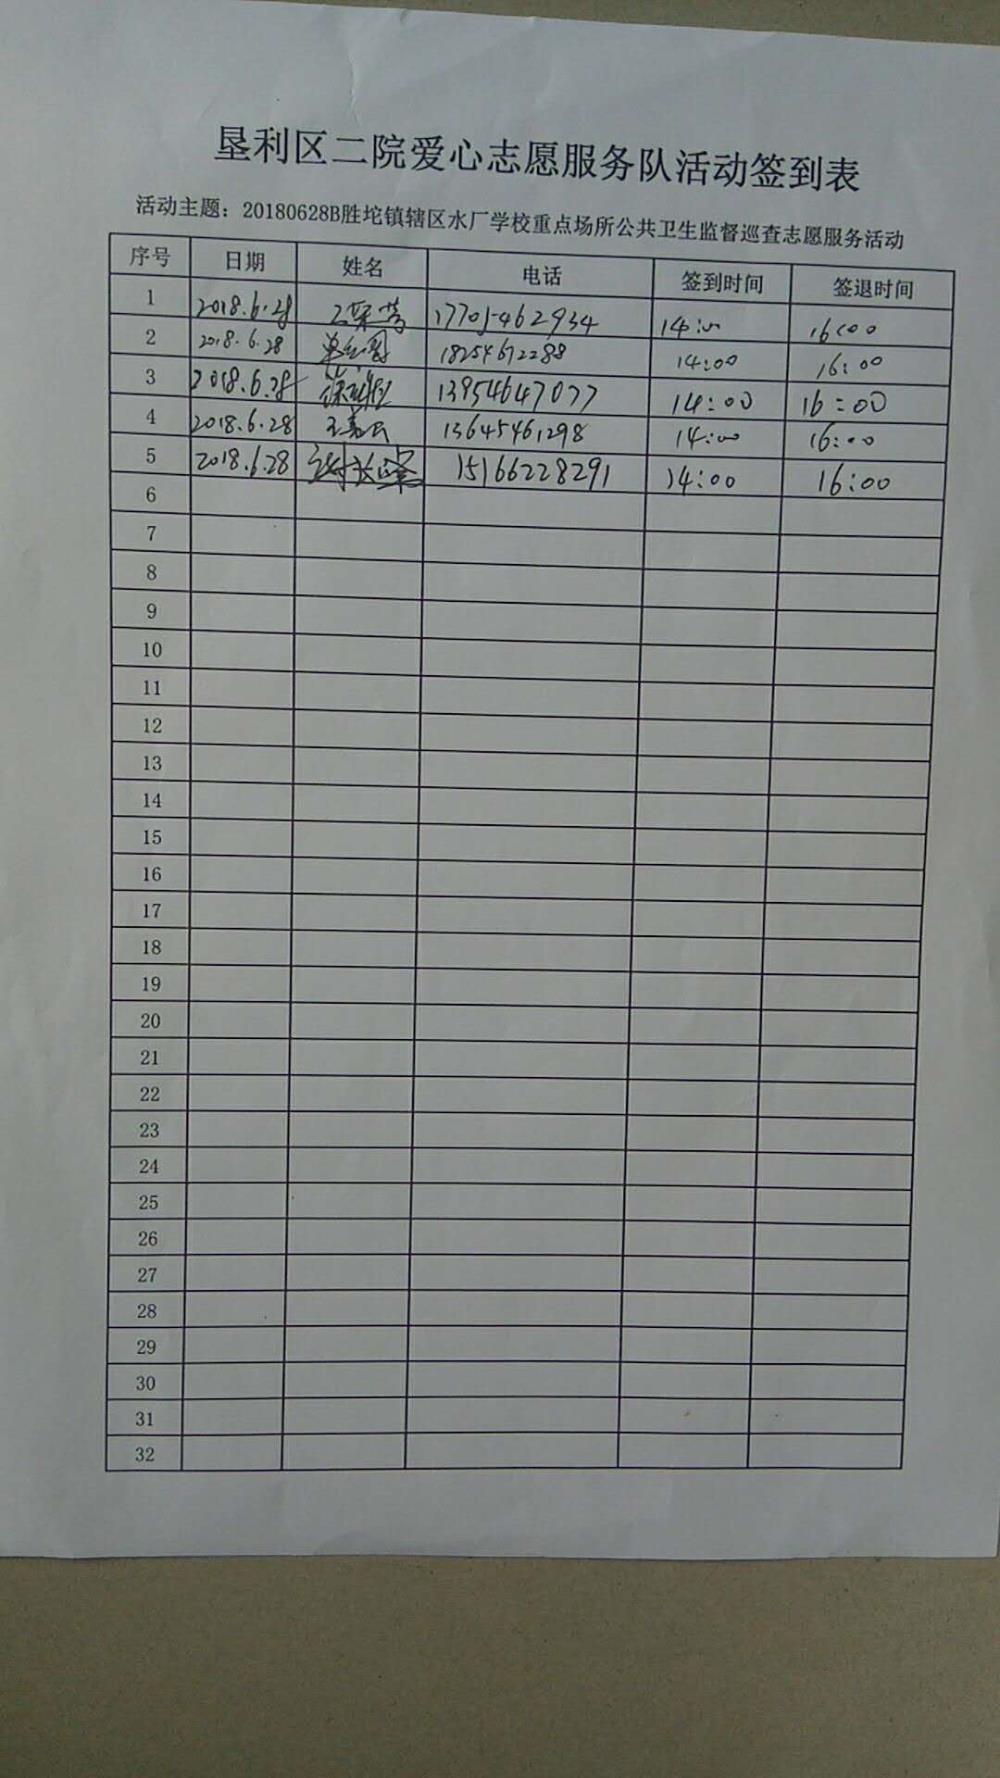 垦利区二院爱心志愿服务队活动签到表
活动主题：20180628B胜坨镇辖区水厂学校重点场所公共卫生监督巡查志愿服务活动
序号 日期 姓名 电话 签到时间 签退时间
1 2018.6.28 17705462934 14:00 16:00
2 2018.6.28 18254672288 14:00 16:00
3 2018.6.28 13954647077 14:00 16:00
4 2018.6.28 13645461298 14:00 16:00
5 2018.6.28 15166228291 14:00 16:00
6
7
8
9
10
11
12
13
14
15
16
17
18
19
20
21
22
23
24
25
26
27
28
29
30
31
32